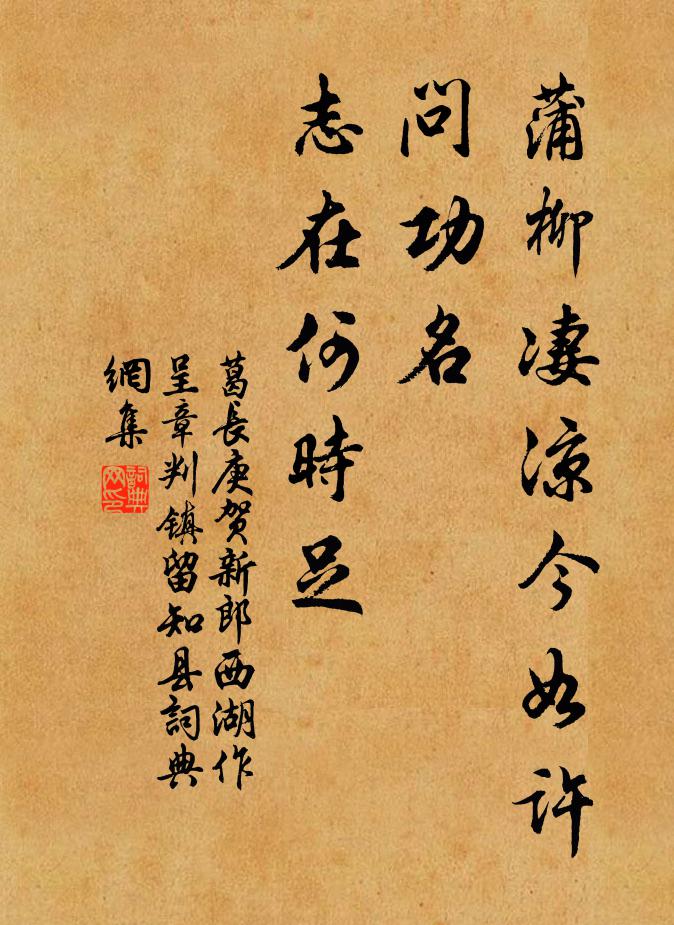 蒲柳凄凉今如许
问功名
志在何時足
葛長庚贺新郎西湖作
呈章判镇留知县詞典
網集
詞典网印